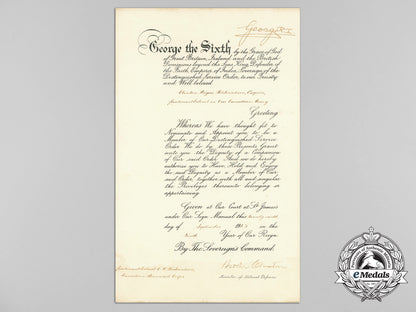 George R.I.
George the Sixth by the Grace of God
of Great Britain, Ireland and the British
Dominions beyond the Seas King, Defender of
the Faith, Emperor of India, Sovereign of the
Distinguished Service Order, to our Trusty
and Well beloved
Charles Richardson, Esquire,
Lieutenant-Colonel in Our Canadian Army
Greeting
Whereas We have thought fit to
Nominate and Appoint you to be a
Member of Our Distinguished Service
Order We do by these Presents Grant
unto you the Dignity of a Companion
of Our said Order And we do hereby
authorise you to Have, Hold and Enjoy
the said Dignity as a Member of Our
said Order, together with all and singular
the Privileges thereunto belonging or
appertaining.
Given at Our Court at St. James's
under Our Sign Manual this twenty
day of September 194 in the
Year of Our Reign.
By The Sovereign's Command.
Lieutenant-Colonel Richardson
Canadian Armoured Corps
Minister of National Defence
eMedals